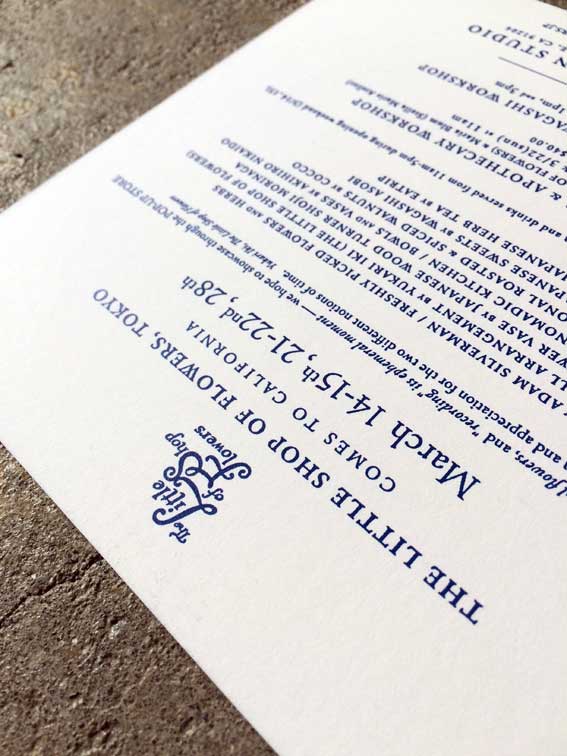 The
Little
Shop
of
Flowers
THE LITTLE SHOP OF FLOWERS, TOKYO
COMES TO CALIFORNIA
March 14-15th, 21-22nd, 28th
flowers, and "recording" its ephemeral moment — we hope to showcase through the POP-UP STORE
and appreciation for the two different notions of time. Yukari Iki, The Little Shop of Flowers
ADAM SILVERMAN / FRESHLY PICKED FLOWERS AND HERBS
ARRANGEMENT BY YUKARI IKI (THE LITTLE SHOP OF FLOWERS)
VASE BY JAPANESE WOOD TURNER SHOJI MORINAGA
NOMADIC KITCHEN / BOWLS AND VASES BY AKIHIRO NIKAIDO
ROASTED & SPICED WALNUTS BY COCCO
SWEETS BY WAGASHI ASOBI
JAPANESE HERB TEA BY EATRIP
and drinks served from 11am-5pm during opening weekend
& APOTHECARY WORKSHOP
OF FLOWERS) &
3/22 (SUN) at 11am
$40.00
WAGASHI WORKSHOP
1pm, and 3pm
STUDIO